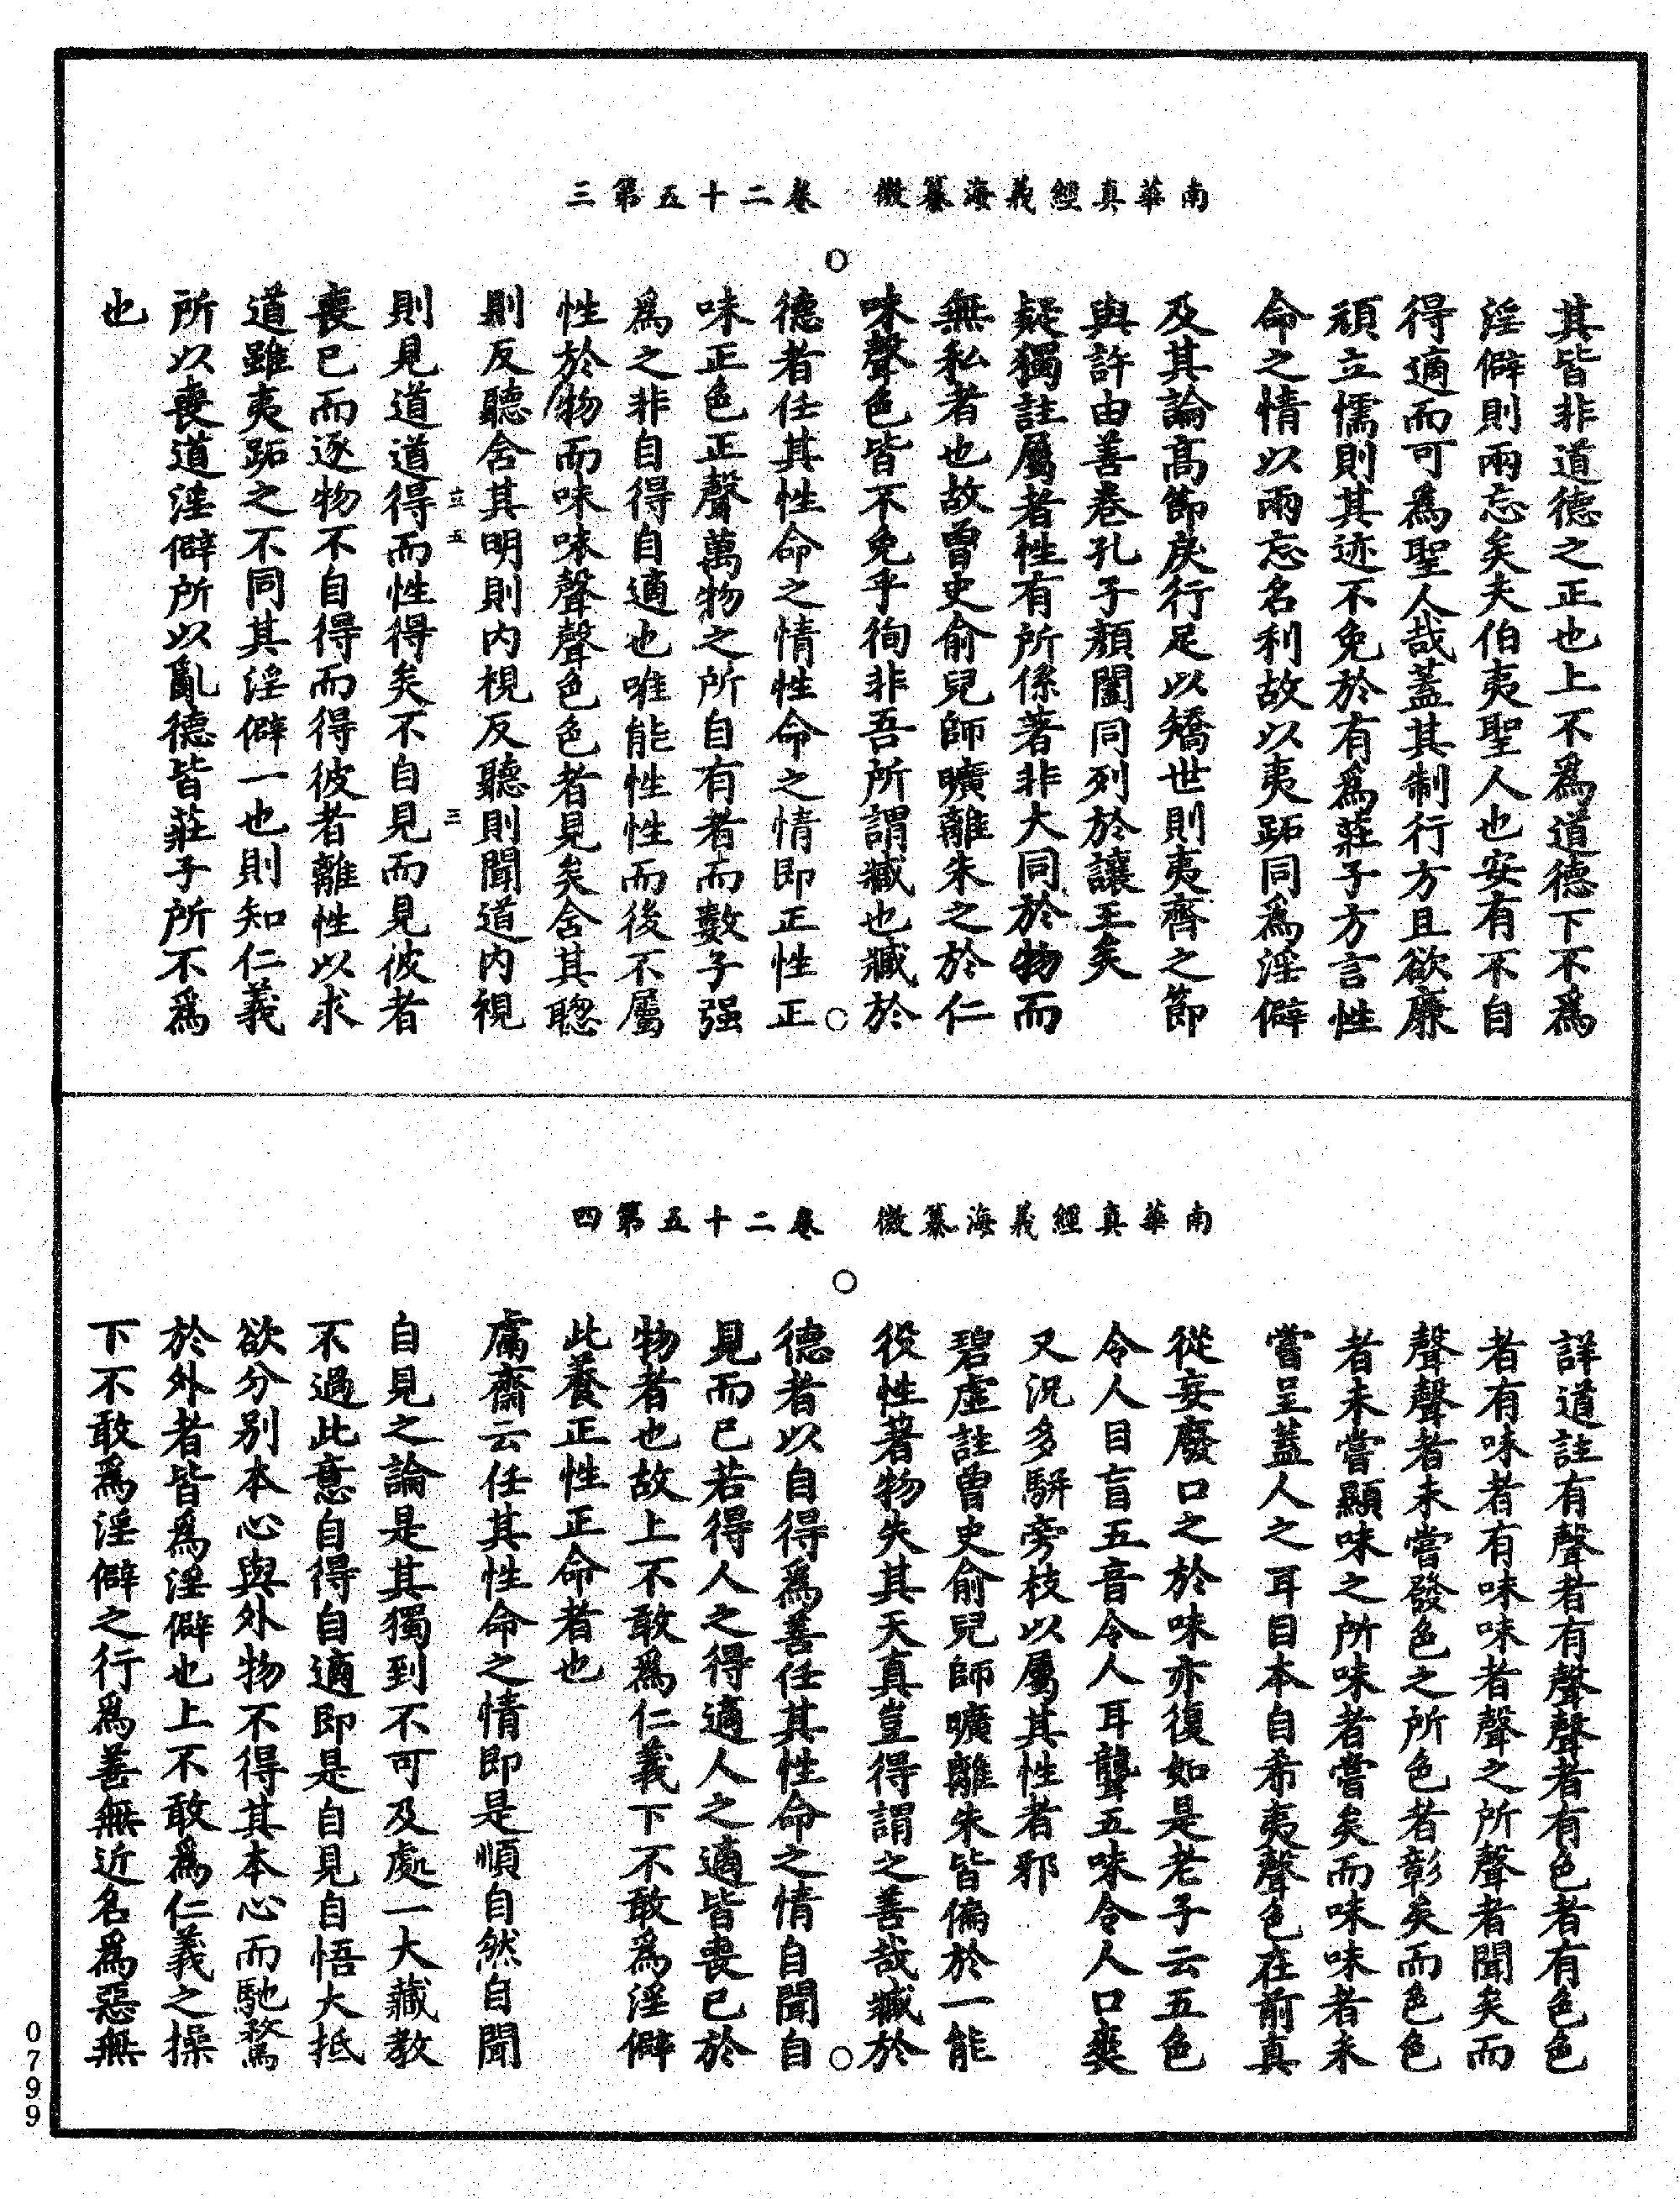 南華真經義海纂微　卷二十五第三
其皆非道德之正也上不爲道德下不爲
淫僻則兩忘矣夫伯夷聖人也安有不自
得適而可爲聖人哉蓋其制行方且欲廉
頑立懦則其迹不免於有爲莊子方言性
命之情以兩忘名利故以夷跖同爲淫僻
及其論高節戾行足以矯世則夷齊之節
與許由善卷孔子顏闔同列於讓王矣
疑獨註屬者性有所係著非大同於物而
無私者也故曾史俞兒師曠離朱之於仁
味聲色皆不免乎徇非吾所謂臧也臧於
德者任其性命之情性命之情即正性正
味正色正聲萬物之所自有者而數子强
爲之非自得自適也唯能性性而後不屬
性於物而味味聲聲色色者見矣舍其聰
則反聽舍其明則内視反聽則聞道内視
則見道道得而性得矣不自見而見彼者
喪已而逐物不自得而得彼者離性以求
道雖夷跖之不同其淫僻一也則知仁義
所以喪道淫僻所以亂德皆莊子所不爲
也
立五
三
南華真經義海纂微　卷二十五第四
詳道註有聲者有聲聲者有色者有色色
者有味者有味味者聲之所聲者聞矣而
聲聲者未嘗發色之所色者彰矣而色色
者未嘗顯味之所味者嘗矣而味味者未
嘗呈蓋人之耳目本自希夷聲色在前真
從妄廢口之於味亦復如是老子云五色
令人目盲五音令人耳聾五味令人口爽
又況多駢旁枝以屬其性者邪
碧虛註曾史俞兒師曠離朱皆偏於一能
役性著物失其天真豈得謂之善哉臧於
德者以自得爲善任其性命之情自聞自
見而已若得人之得適人之適皆喪已於
物者也故上不敢爲仁義下不敢爲淫僻
此養正性正命者也
鬳齋云任其性命之情即是順自然自聞
自見之論是其獨到不可及處一大藏教
不過此意自得自適即是自見自悟大抵
欲分別本心與外物不得其本心而馳騖
於外者皆爲淫僻也上不敢爲仁義之操
下不敢爲淫僻之行爲善無近名爲惡無
0799